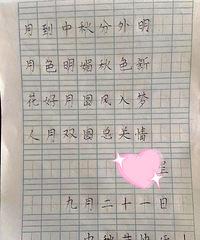 月到中秋分外明
月色明媚秋色新
花好月圆风入梦
人月双圆总关情
九月二十一日
中秋节快乐